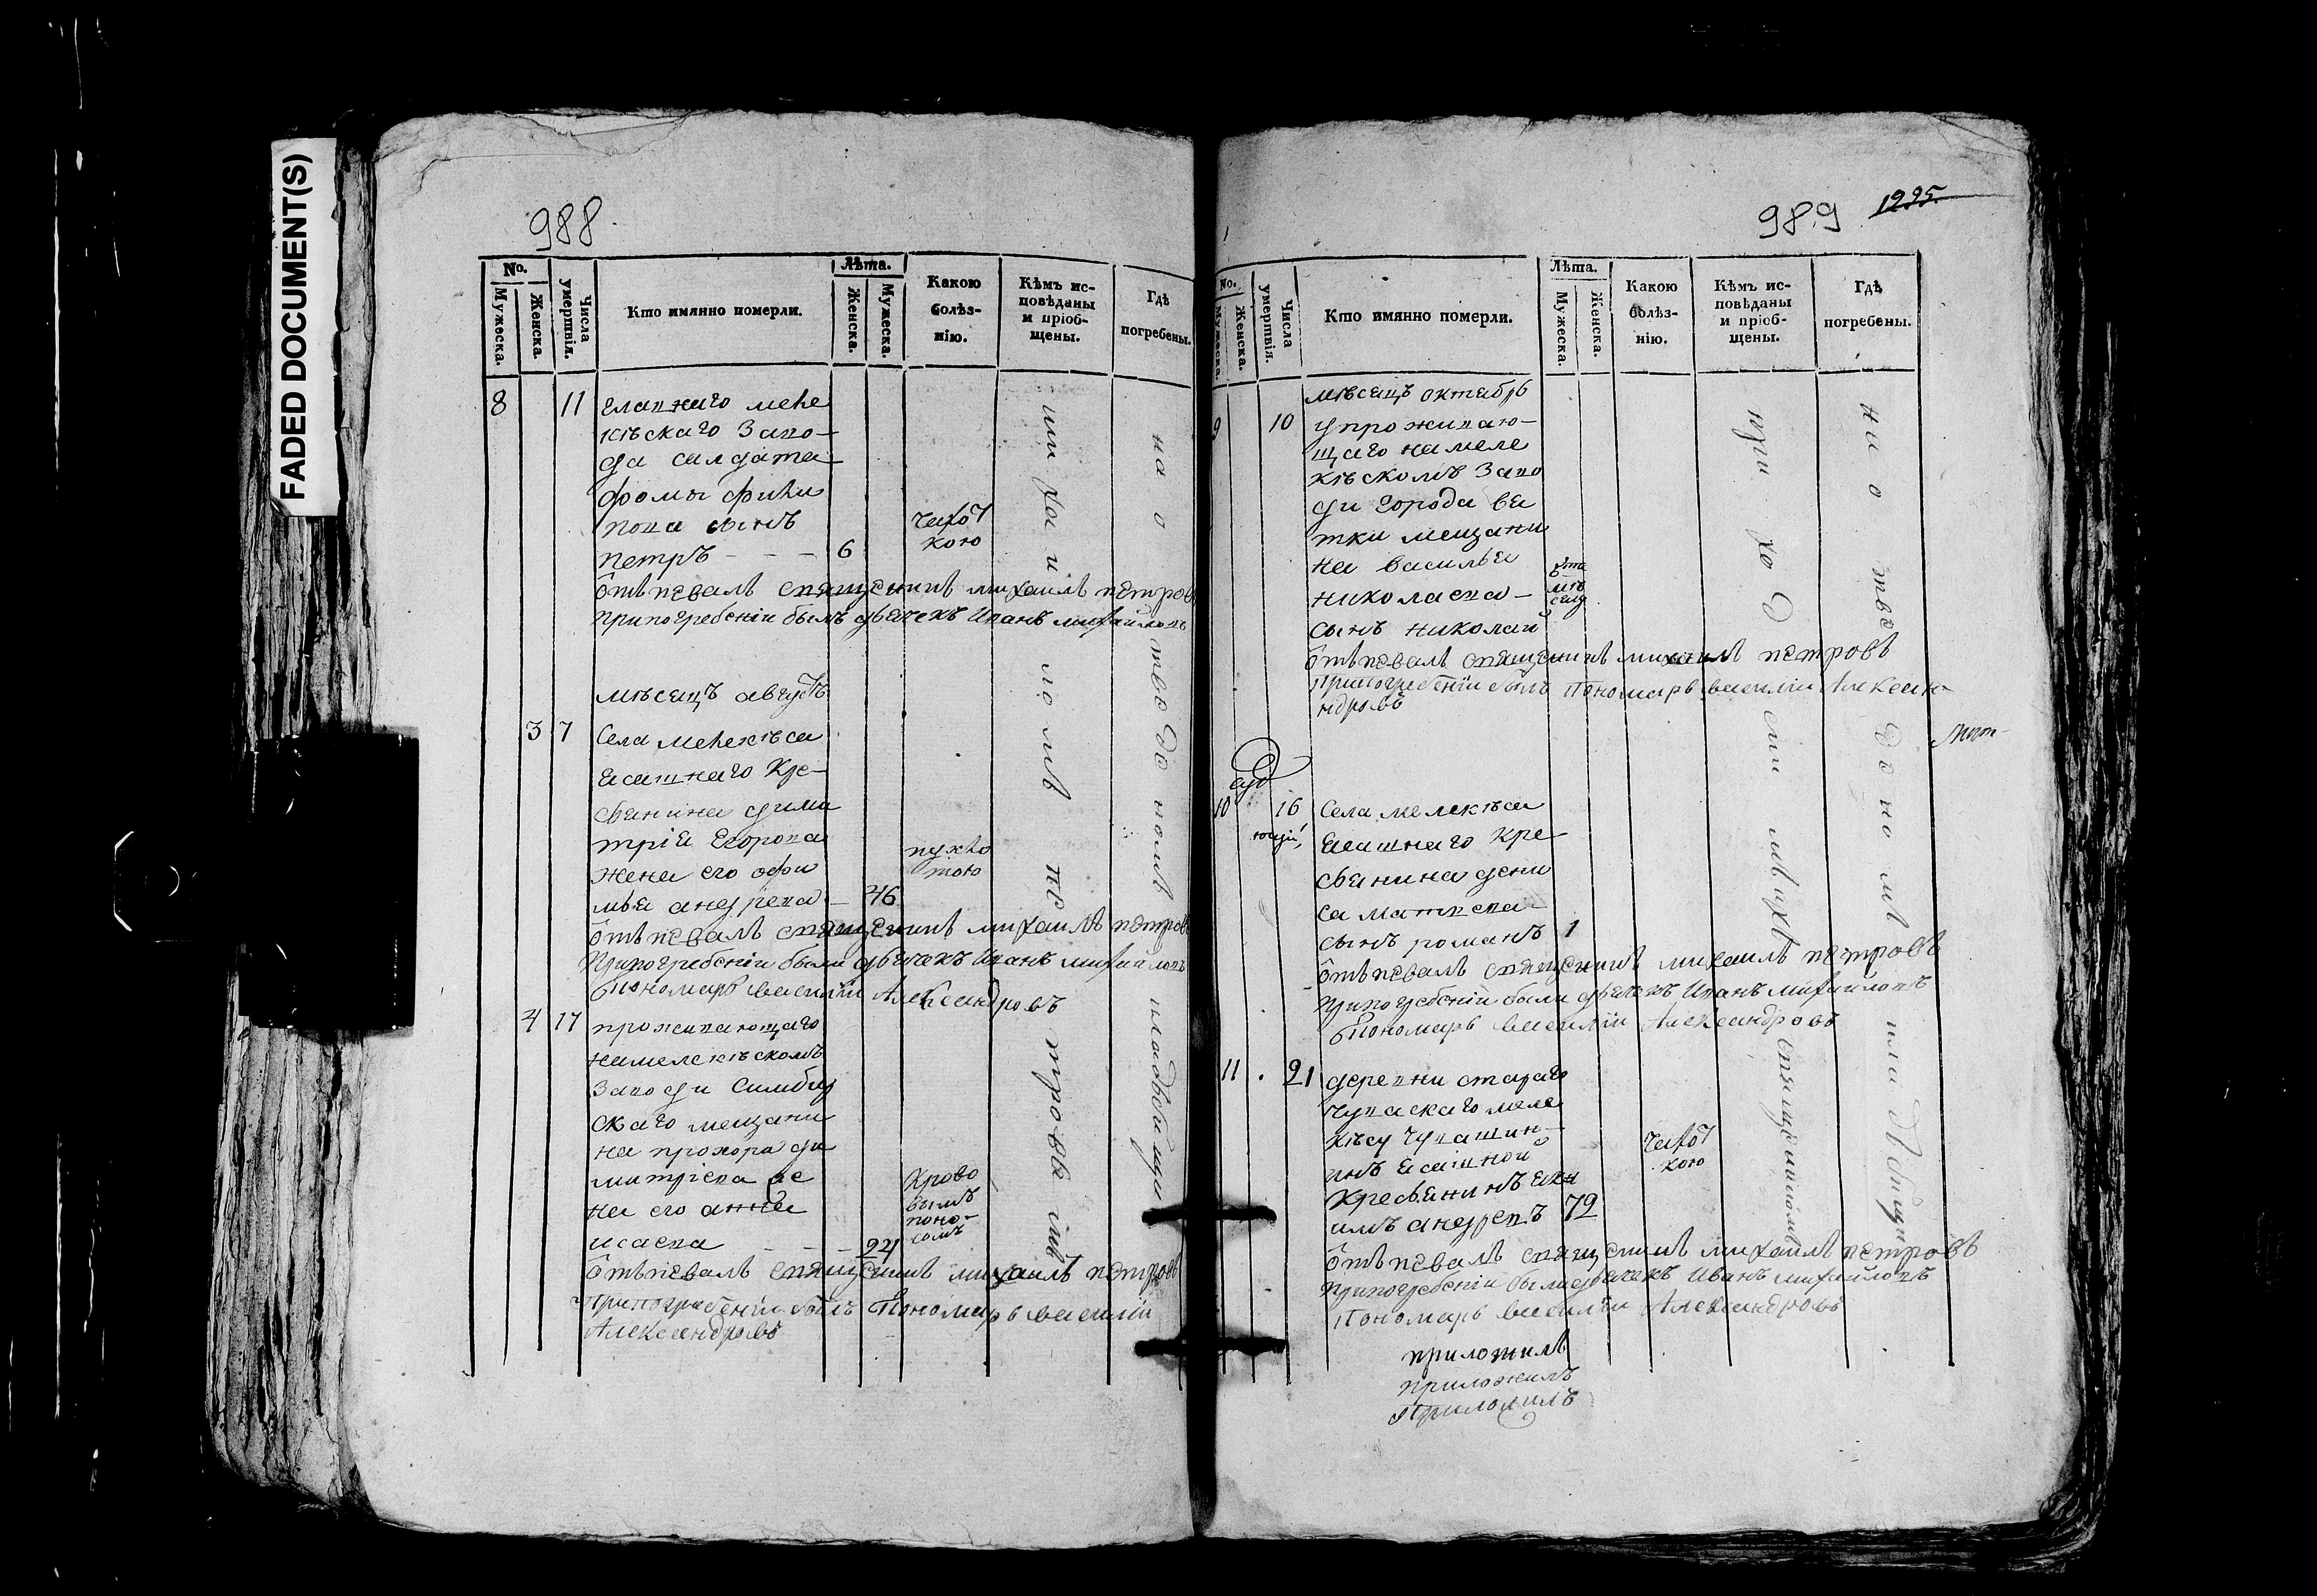 FADED DOCUMENT(S)
988.
No.
Мужеска.
Женска.
Числа умертвія.
Кто имянно померли.
Лѣта.
Женска.
Мужеска.
Какою
болѣз-
нію.
Кѣмъ ис-
повѣданы
и пріоб-
щены.
Гдѣ
погребены.
8 11
да салдата
сынъ
петръ - - - 6
чахот
кою
отпевалъ священникъ михаилъ петровъ
при погребеніи былъ дьячекъ Иванъ михайловъ
мѣсецъ августъ
3 7 Села мелекѣса
ясашнаго кре-
стьянина дими
трія Егорова
жена его офи
мья андрева - 46
отпевалъ священникъ михаилъ петровъ
при погребеніи были дьячекъ Иванъ михайловъ
Пономарь василіи Александровъ
4 17 проживающаго
на мелекѣскомъ
заводи Симбир
скаго мещани
на прохора ди
митріева же
на его анна
исаева - - - 24
крово
вымъ
поно-
сомъ
отпевалъ священникъ михаилъ петровъ
при погребеніи былъ Пономарь василіи
Александровъ
михаиломъ петровымъ
на отведеномъ кладбищи
989
1225.
No.
Мужеска.
Женска.
Числа умертвія.
Кто имянно померли.
Лѣта.
Мужеска.
Женска.
Какою
болѣз-
нію.
Кѣмъ ис-
повѣданы
и пріоб-
щены.
Гдѣ
погребены.
мѣсецъ октабрь
9 10 у проживаю-
щаго на меле
кѣскомъ заво
ди города вя
тки мещани
на василья
николаева -
сынъ николай
отпевалъ священникъ михаилъ петровъ
при погребеніи былъ Пономарь василіи Алексан-
ндровъ
10 16 Села мелекѣса
ясашнаго кре-
стьянина дени
са матвева
сынъ романъ 1
отпевалъ священникъ михаилъ петровъ
при погребеніи были дьячекъ Иванъ михайловъ
Пономарь василіи Александровъ
11 21 деревни стараго
чуваскаго меле
кѣсу чувашин-
инъ ясашной
кресьянинъ еки
имъ андревъ 72
чахот
кою
отпевалъ священникъ михаилъ петровъ
при погребеніи были дьячекъ Иванъ михайловъ
Пономарь василіи Александровъ
приложилъ
приложилъ
приложилъ
священникомъ
на отведеномъ кладбищи